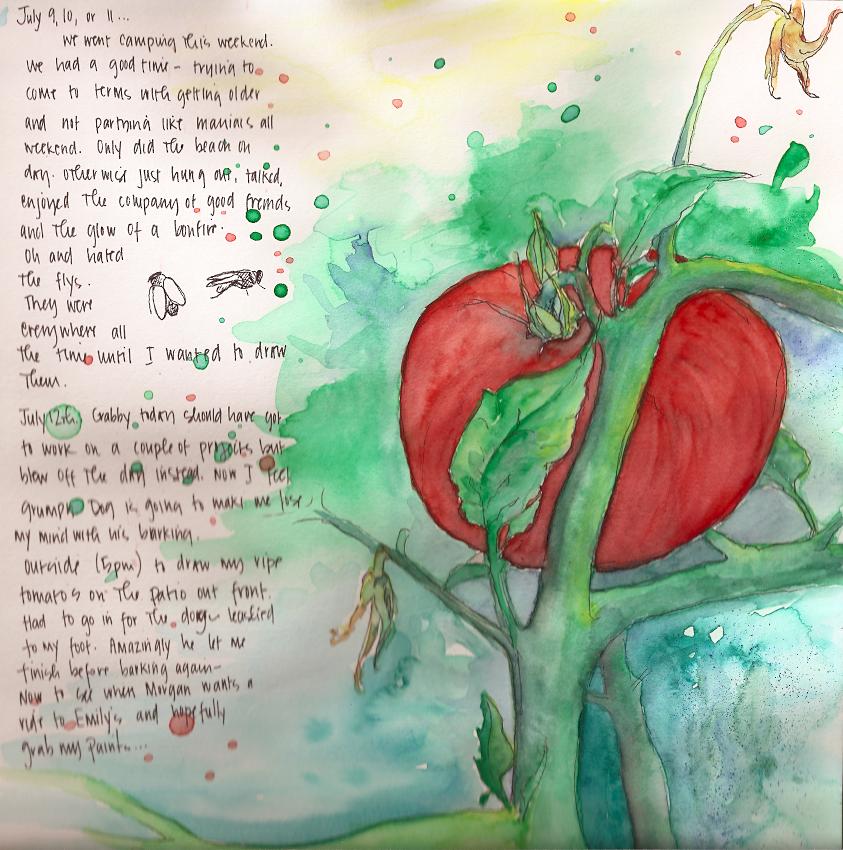 July 9, 10, or 11...
we went camping this weekend.
we had a good time - trying to
come to terms with getting older
and not partying like maniacs all
weekend. Only did the beach on
day. otherwise just hung out, talked,
enjoyed the company of good freinds
and the glow of a bonfire.
Oh and hated
the flys.
They were
everywhere all
the time until I wanted to draw
Them.
July 12th. Crabby today should have got
to work on a couple of projects but
blew off the day instead. Now I feel
grumpy. Dog is going to make me lose
my mind with his barking.
outside (5pm) to draw my ripe
tomato's on the patio out front.
Had to go in for the dog - leashed
to my foot. Amazingly he let me
finish before barking again -
Now to see when Morgan wants a
ride to Emily's and hopefully
grab my paints...